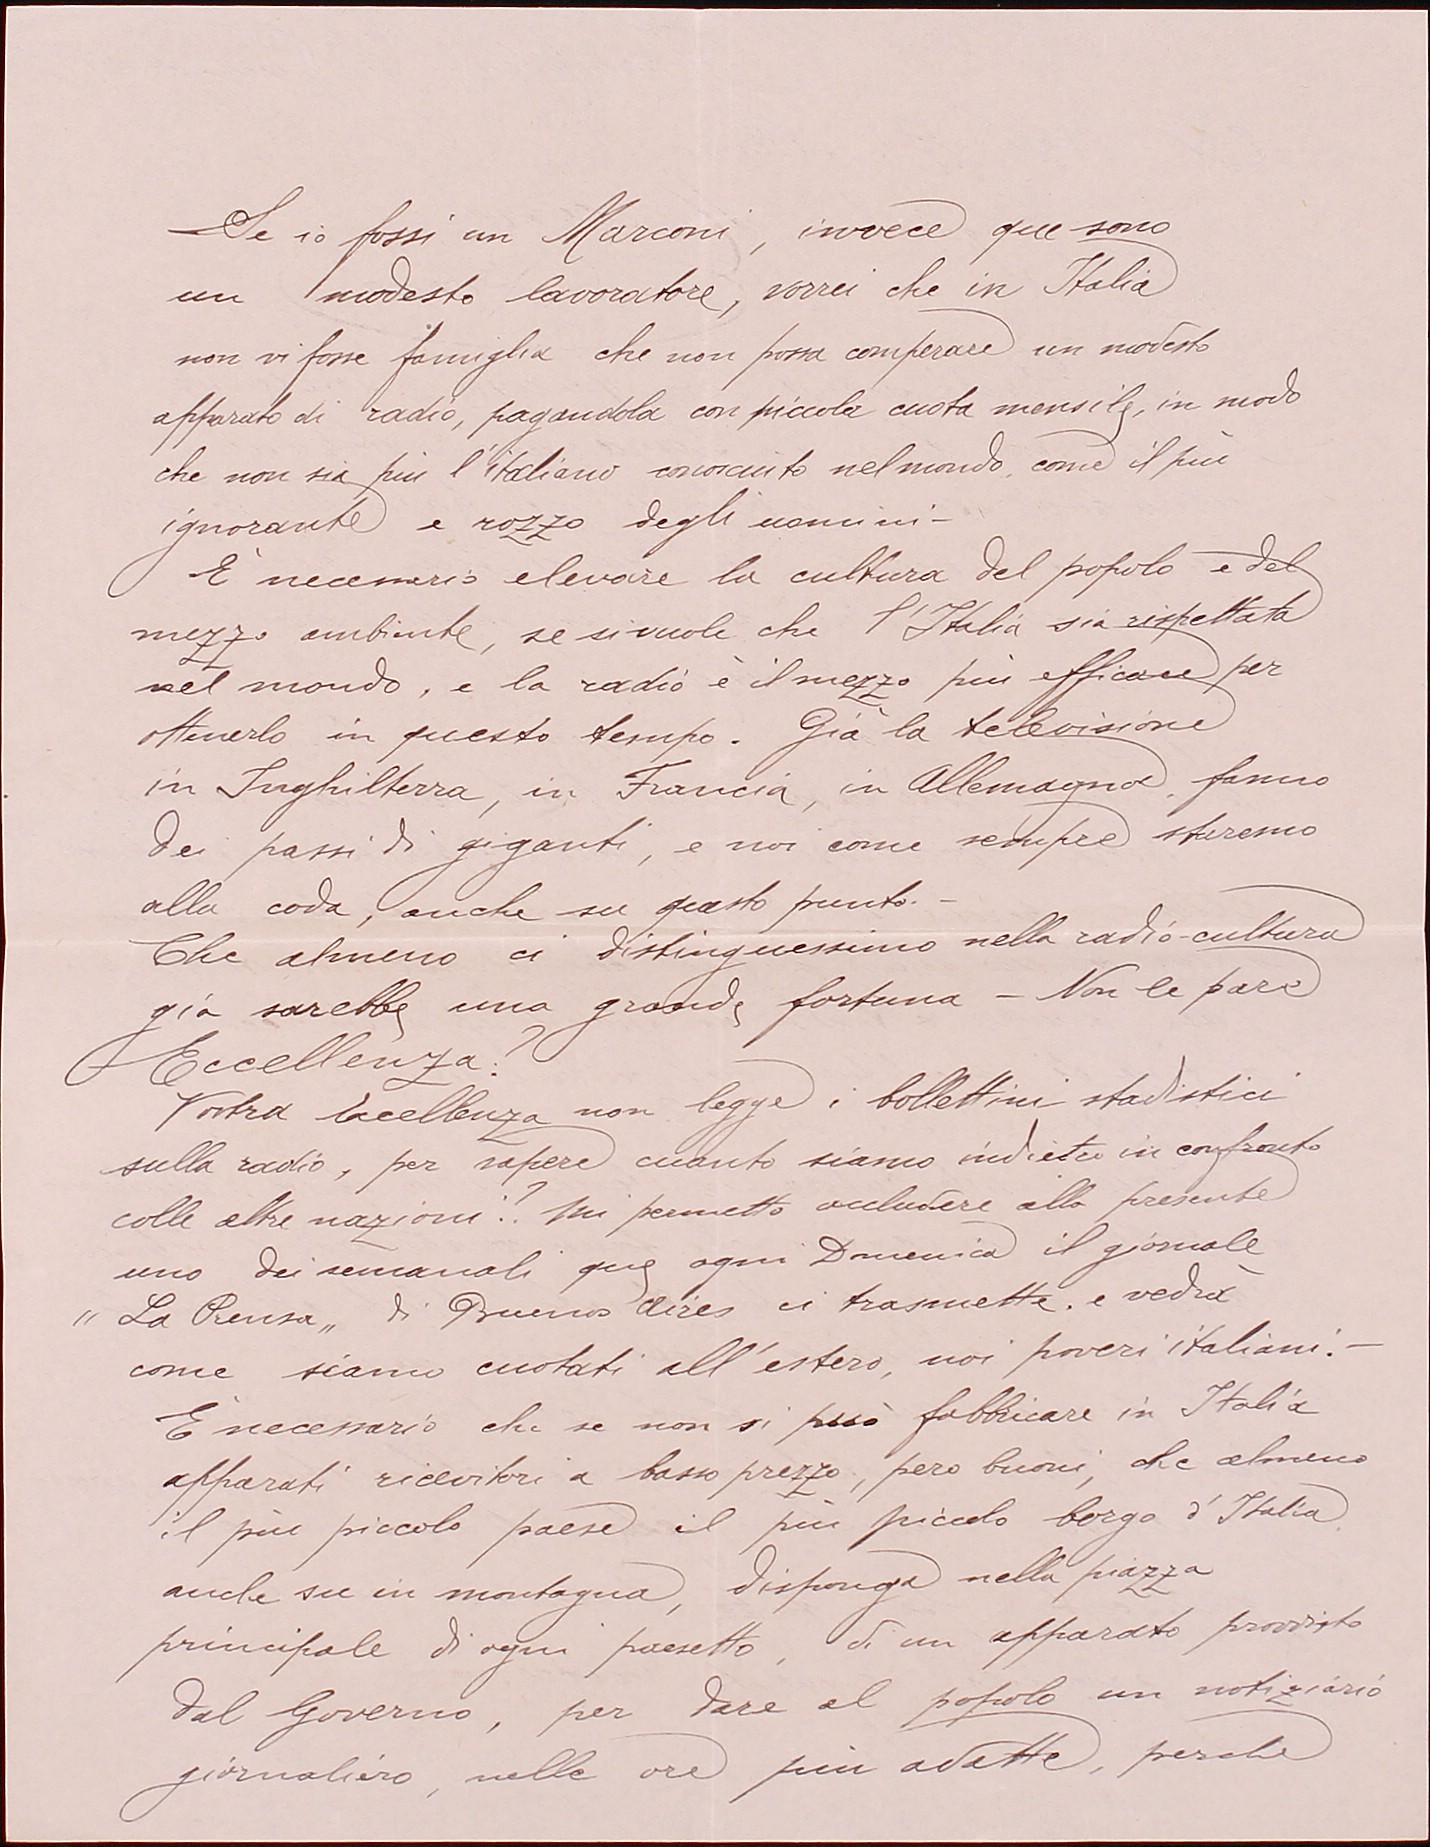 Se io fossi un Marconi, invece que sono
un modesto lavoratore, vorrei che in Italia
non vi fosse famiglia che non possa comperare un modesto
apparato di radio, pagandola con piccola cuota mensile, in modo
che non sia più l'italiano conosciuto nel mondo, come il più
ignorante e rozzo degli uomini -
È necessario elevare la cultura del popolo e del
mezzo ambiente, se si vuole che l'Italia sia rispettata
nel mondo, e la radio è il mezzo più efficace per
ottenerlo in questo tempo. Già la televisione
in Inghilterra, in Francia, in Allemagna, fanno
dei passi di giganti, e noi come sempre staremo
alla coda, anche su questo punto. -
Che almeno ci distinguessimo nella radio-cultura
già sarebbe una grande fortuna - Non le pare
Eccellenza?
Vostra Eccellenza non legge i bollettini stadistici
sulla radio, per sapere cuanto siamo indietro in confronto
colle altre nazioni? Mi permetto accludere alla presente
uno dei semanali que ogni Domenica il giornale
"La Prensa" di Buenos Aires ci trasmette. e vedrà
come siamo cuotati all'estero, noi poveri italiani. -
È necessario che se non si può fabbricare in Italia
apparati ricevitori a basso prezzo, pero buoni, che almeno
il più piccolo paese il più piccolo borgo d'Italia,
anche su in montagna, disponga nella piazza
principale di ogni paesetto, di un apparato provvisto
dal Governo, per dare al popolo un notiziario
giornaliero, nelle ore più adatte, perche